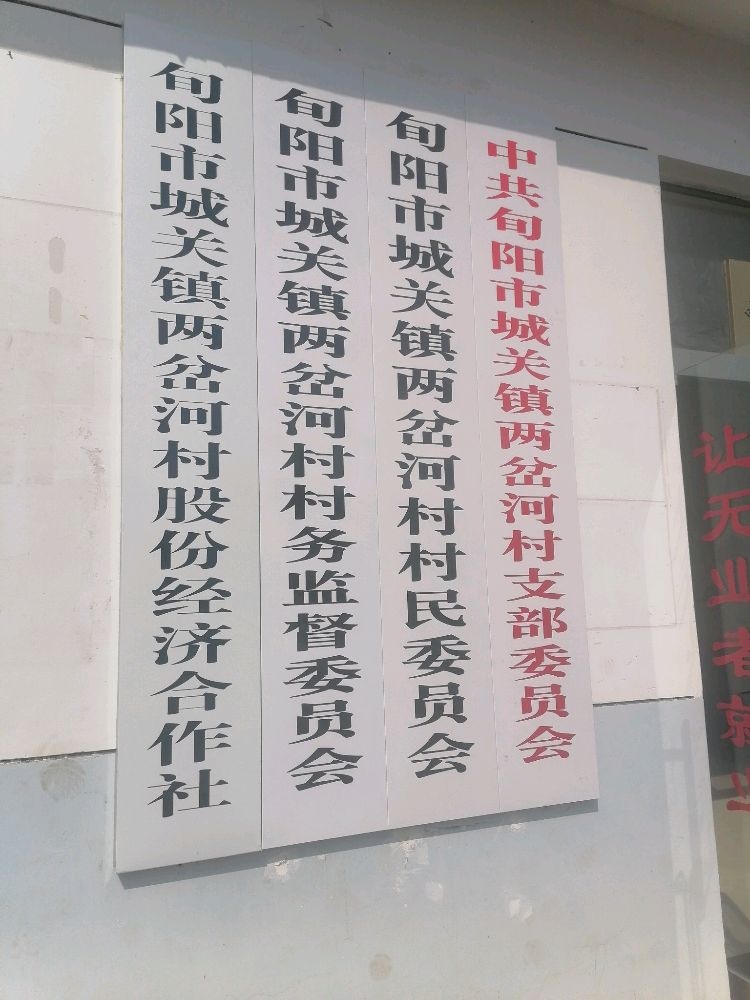 中共旬阳市城关镇两岔河村支部委员会
旬阳市城关镇两岔河村村民委员会
旬阳市城关镇两岔河村村务监督委员会
旬阳市城关镇两岔河村股份经济合作社
让无业者就业